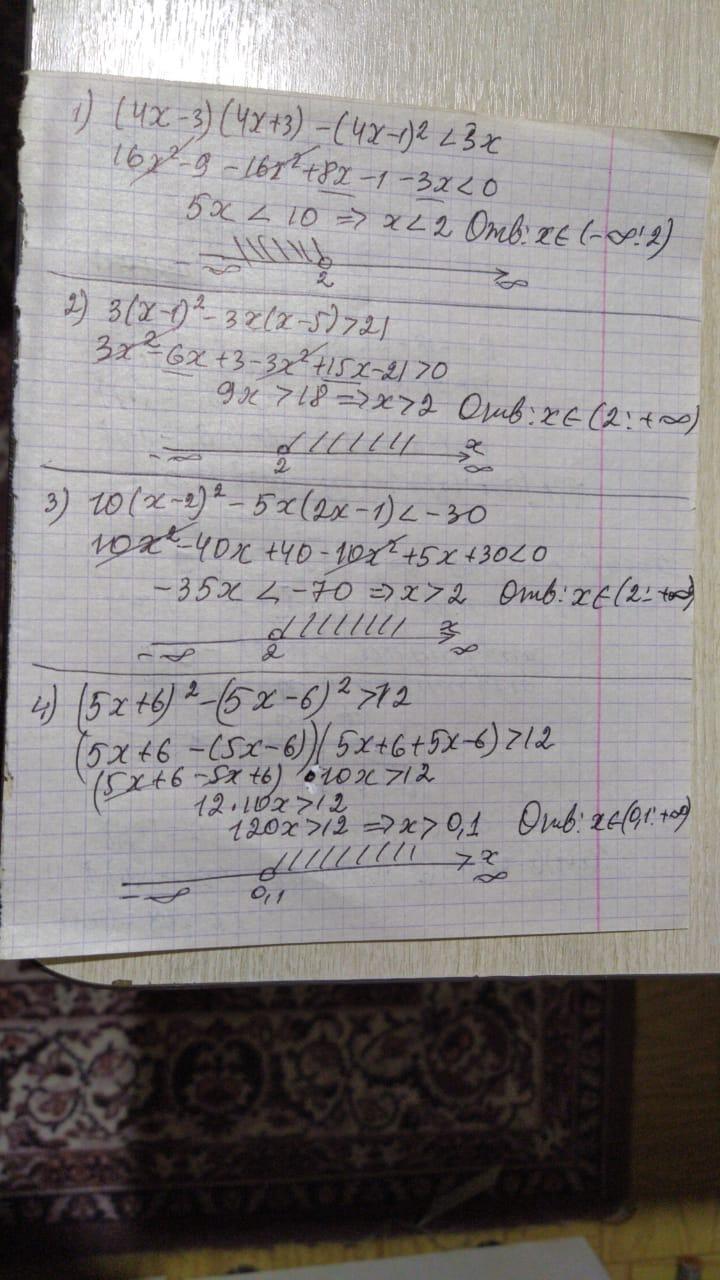 1) (4x-3)(4x+3)-(4x-1)²<3x
16x²-9-16x²+8x-1-3x<0
5x<10 => x<2 Отв: x∈(-∞;2)
-∞ 2 ∞
2) 3(x-1)²-3x(x-5)>21
3x²-6x+3-3x²+15x-21>0
9x>18 => x>2 Отв: x∈(2;+∞)
-∞ 2 x ∞
3) 10(x-2)²-5x(2x-1)<-30
10x²-40x+40-10x²+5x+30<0
-35x<-70 => x>2 Отв: x∈(2;+∞)
-∞ 2 x ∞
4) (5x+6)²-(5x-6)²>12
(5x+6-(5x-6))(5x+6+5x-6)>12
(5x+6-5x+6)·10x>12
12·10x>12
120x>12 => x>0,1 Отв: x∈(0,1;+∞)
-∞ 0,1 x ∞